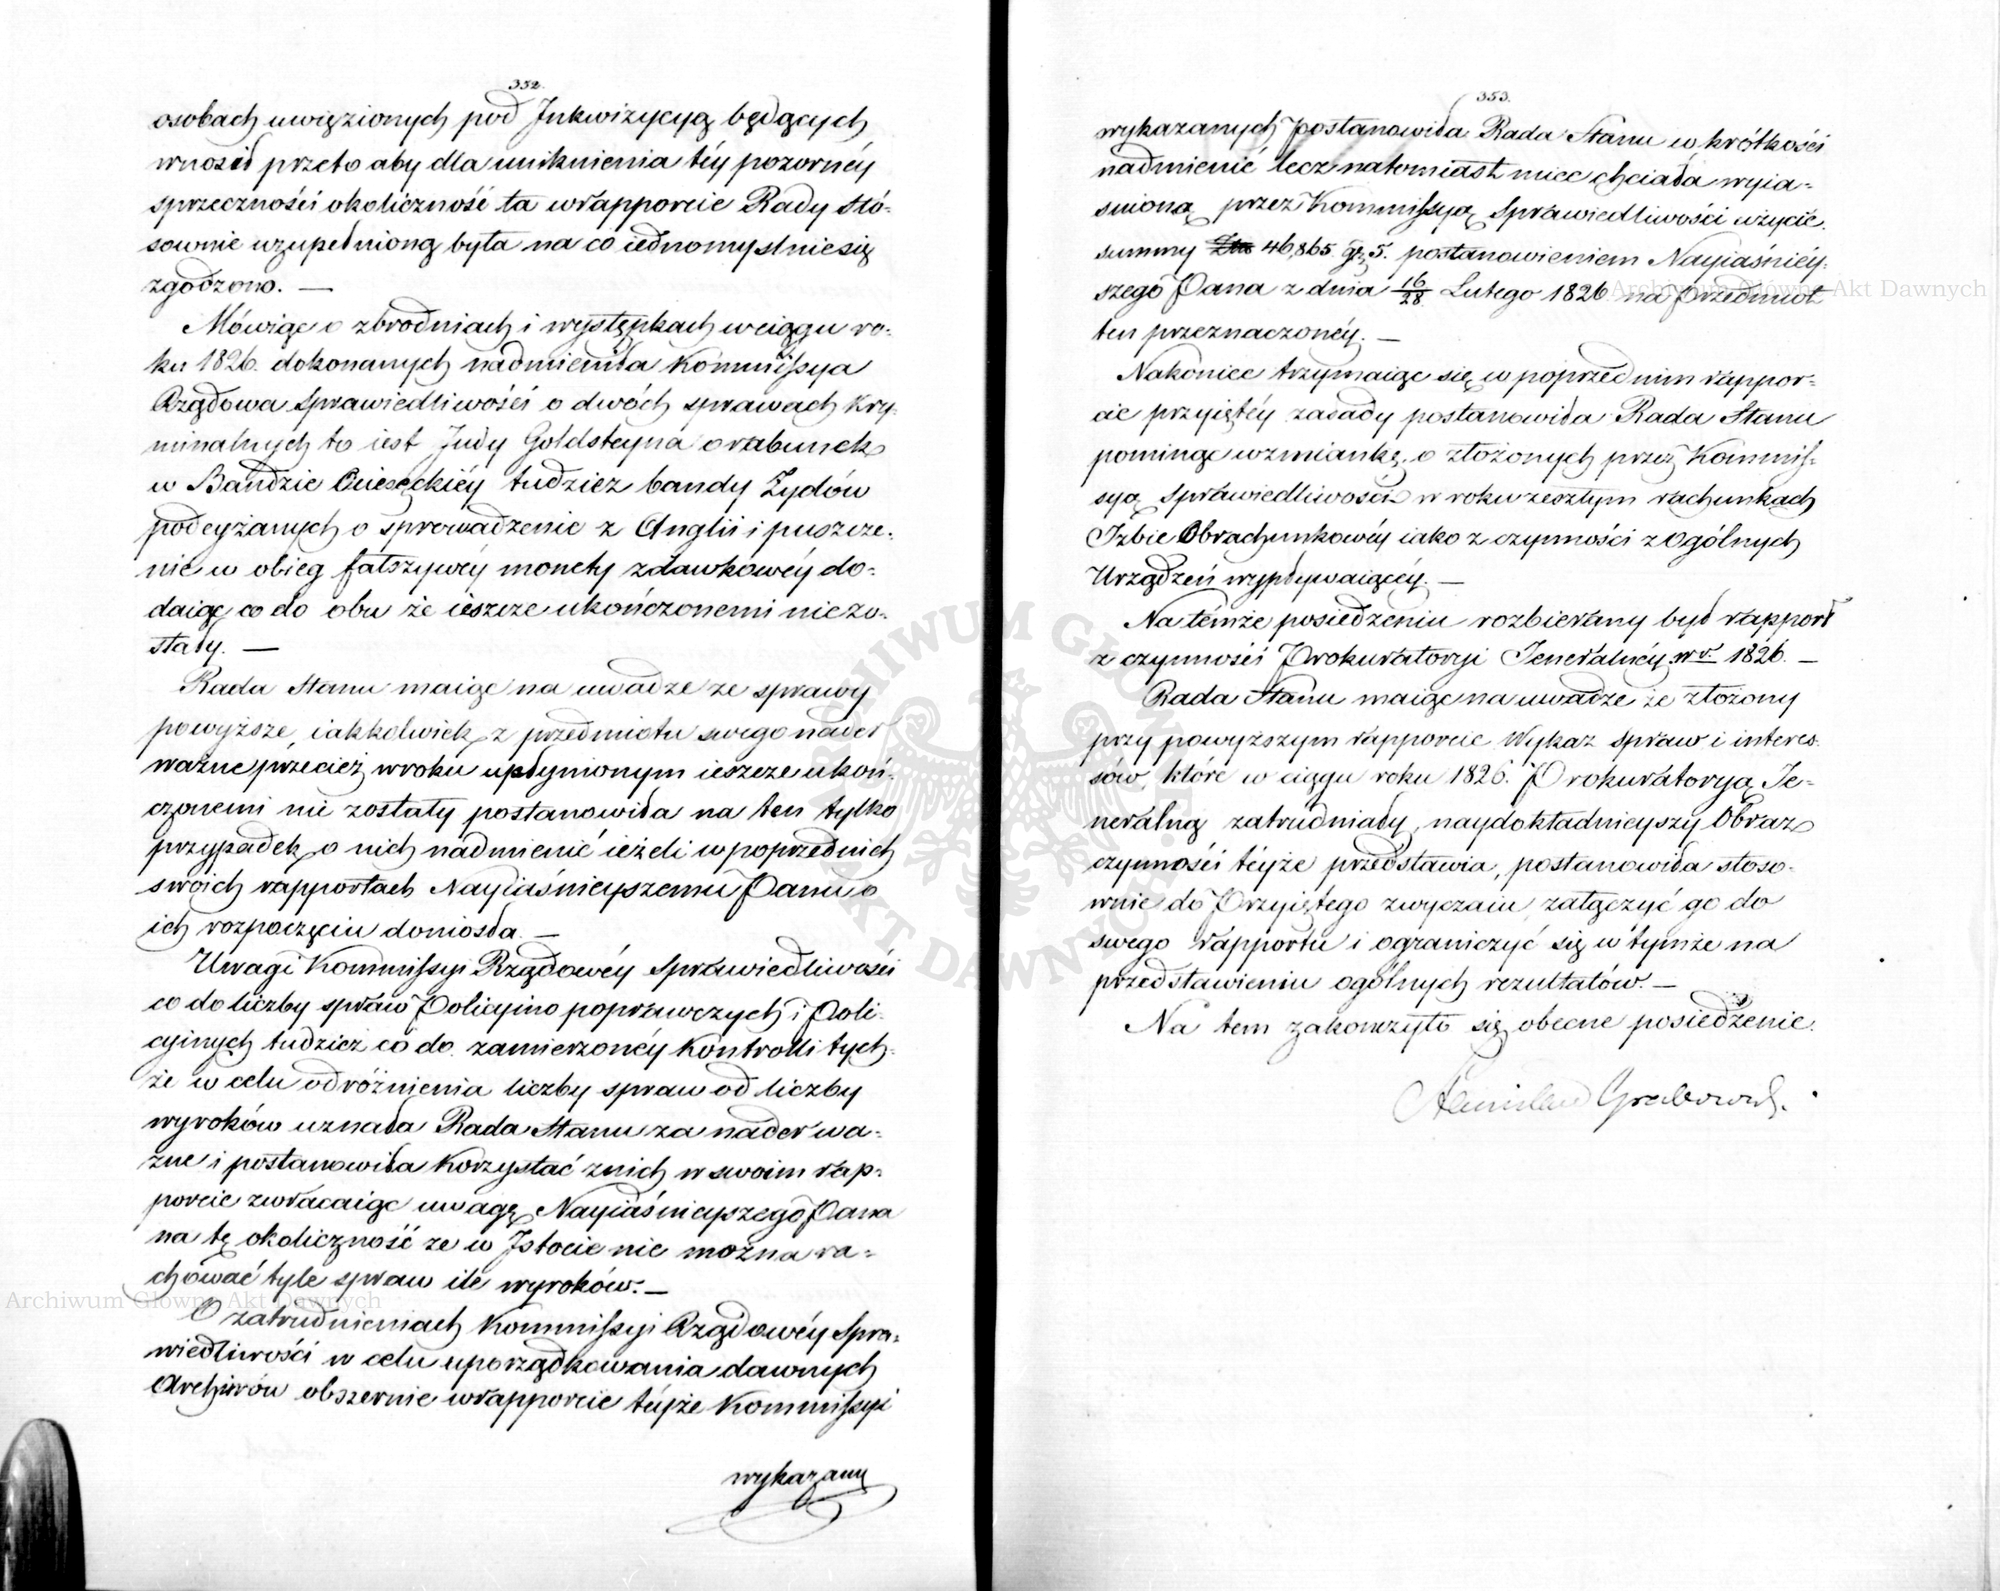 352.
osobach uwięzionych pod Inkwizycyą będących
wnosił przeto aby dla uniknienia téy pozornéy
sprzeczności okoliczność ta w rapporcie Rady stó-
sownie uzupełnioną była na co iednomyslnie się
zgodzono. —
Mówiąc o zbrodniach i występkach w ciągu ro-
ku 1826. dokonanych nadmieniła Kommissya
Rządowa Sprawiedliwości o dwóch sprawach kry-
minalnych to iest Judy Goldsteyna o rabunek
w Bandzie tudzież bandy Żydów
podeyżanych o sprowadzenie z Anglii i puszcze-
nie w obieg fałszywéy monety zdawkowéy do-
daiąc co do obu że ieszcze ukończonemi nie zo-
stały. —
Rada Stanu maiąc na uwadze ze sprawy
powyższe, iakkolwiek z przedmiotu swego nader
ważne przecież w roku upłynionym ieszcze ukoń-
czonemi nie zostały postanowiła na ten tylko
przypadek o nich nadmienić ieżeli w poprzednich
swoich rapportach Nayiaśnieyszemu Panu o
ich rozpoczęciu doniosła. —
Uwagi Kommissyi Rządowéy Sprawiedliwości
co do liczby spraw Policyino poprawczych i Poli-
cyinych tudzież co do zamierzonéy Kontrolli tych-
że w celu odróżnienia liczby spraw od liczby
wyroków uznała Rada Stanu za nader wa-
żne i postanowiła korzystać z nich w swoim rap-
porcie zwracaiąc uwagę Nayiaśnieyszego Pana
na tę okoliczność ze w Istocie nie można ra-
chować tyle spraw ile wyroków. —
O zatrudnieniach Kommissyi Rządowéy Spra-
wiedliwości w celu uporządkowania dawnych
Archiwów obszernie w rapporcie téyże Kommissyi
wykazany
353.
wykazanych postanowiła Rada Stanu w krótkości
nadmienić lecz natomiast miec chciała wyia-
śnioną przez Kommissyą Sprawiedliwości użycie
summy 46,865. gr. 5. postanowieniem Nayiaśniéy-
szego Pana z dnia 16/28 Lutego 1826 na przedmiot
ten przeznaczonéy. —
Nakoniec trzymaiąc się w poprzednim rappor-
cie przyiętéy zasady postanowiła Rada Stanu
pominąć wzmiankę o złożonych przez Kommis-
syą Sprawiedliwości w roku zeszłym rachunkach
Izbie Obrachunkowéy iako z czynności z ogólnych
Urządzeń wypływaiącéy. —
Na témże posiedzeniu rozbierany był rapport
z czynności Prokuratoryi Jeneralnéy w r. 1826. —
Rada Stanu maiąc na uwadze że złożony
przy powyższym rapporcie Wykaz spraw i interes-
sów, które w ciągu roku 1826. Prokuratoryą Je-
neralną zatrudniały, naydokładnieyszy Obraz
czynności téyże przedstawia, postanowiła stoso-
wnie do Przyiętego zwyczaiu załączyć go do
swego rapportu i ograniczyć się w tymże na
przedstawieniu ogólnych rezultatów. —
Na tem zakonczyło się obecne posiedzenie.
Stanisław Grabowski.
Archiwum Główne Akt Dawnych
Archiwum Główne Akt Dawnych
ARCHIWUM GŁÓWNE AKT DAWNYCH